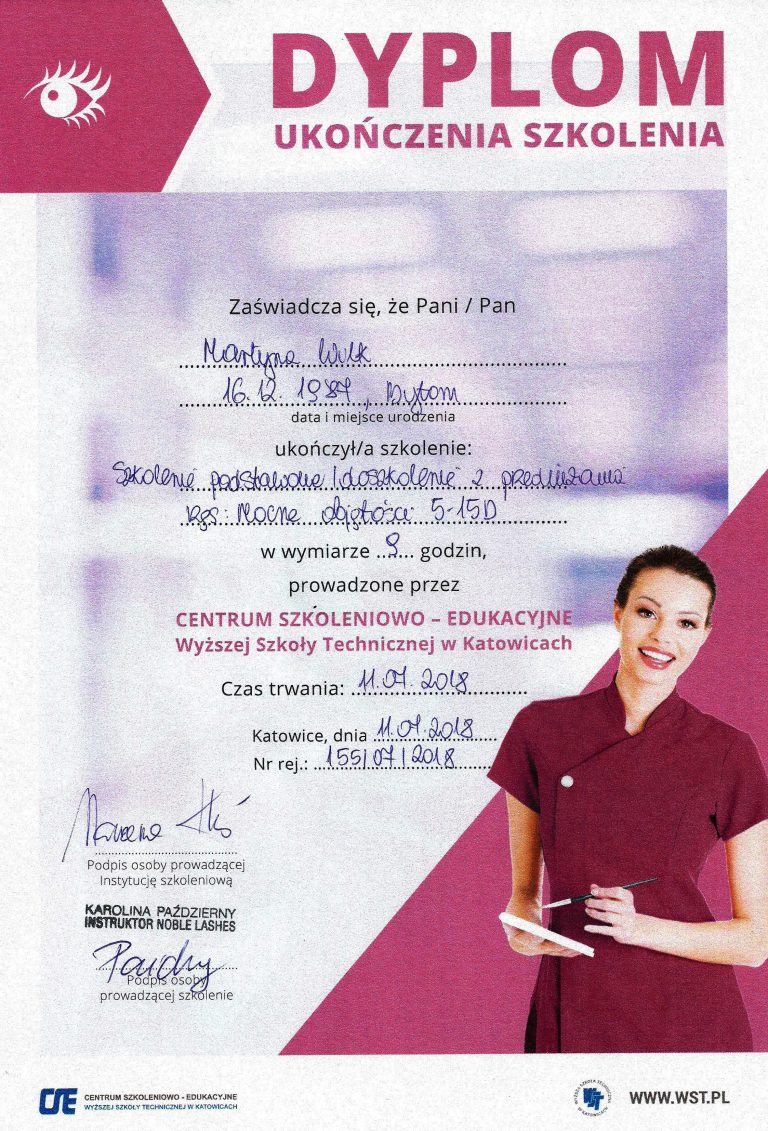 DYPLOM
UKOŃCZENIA SZKOLENIA
Zaświadcza się, że Pani / Pan
Martyna Wilk
16.12.1987, Bytom
data i miejsce urodzenia
ukończył/a szkolenie:
Szkolenie podstawowe / doszkolenie z przedłużania
rzęs: Mocne objętości 5-15D
w wymiarze 9 godzin,
prowadzone przez
CENTRUM SZKOLENIOWO – EDUKACYJNE
Wyższej Szkoły Technicznej w Katowicach
Czas trwania: 11.07.2018
Katowice, dnia 11.07.2018
Nr rej.: 155/07/2018
Podpis osoby prowadzącej
Instytucję szkoleniową
KAROLINA PAŹDZIERNY
INSTRUKTOR NOBLE LASHES
Podpis osoby
prowadzącej szkolenie
CSE CENTRUM SZKOLENIOWO - EDUKACYJNE
WYŻSZEJ SZKOŁY TECHNICZNEJ W KATOWICACH
WYŻSZA SZKOŁA TECHNICZNA W KATOWICACH
WWW.WST.PL